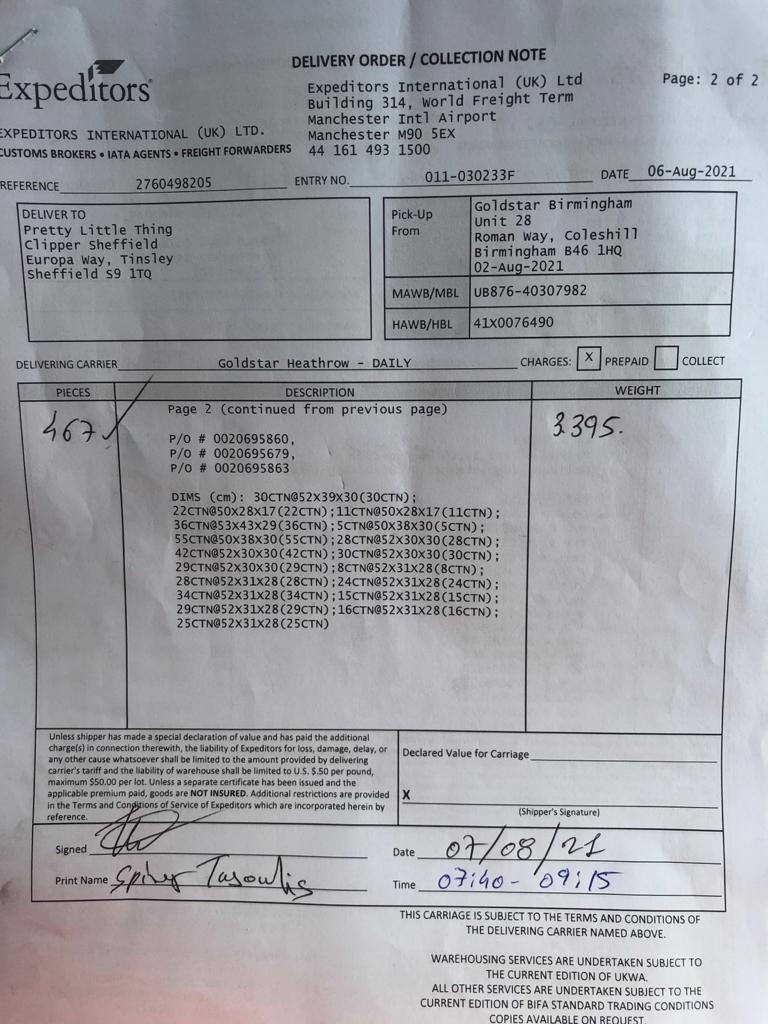 DELIVERY ORDER / COLLECTION NOTE
Expeditors
Expeditors International (UK) Ltd
Building 314, World Freight Term
Manchester Intl Airport
Manchester M90 5EX
44 161 493 1500
Page: 2 of 2
EXPEDITORS INTERNATIONAL (UK) LTD.
CUSTOMS BROKERS • IATA AGENTS • FREIGHT FORWARDERS
REFERENCE 2760498205 ENTRY NO. 011-030233F DATE 06-Aug-2021
DELIVER TO
Pretty Little Thing
Clipper Sheffield
Europa Way, Tinsley
Sheffield S9 1TQ
Pick-Up
From
Goldstar Birmingham
Unit 28
Roman Way, Coleshill
Birmingham B46 1HQ
02-Aug-2021
MAWB/MBL UB876-40307982
HAWB/HBL 41X0076490
DELIVERING CARRIER Goldstar Heathrow - DAILY CHARGES: X PREPAID COLLECT
PIECES DESCRIPTION WEIGHT
467 3395.
Page 2 (continued from previous page)
P/O # 0020695860,
P/O # 0020695679,
P/O # 0020695863
DIMS (cm): 30CTN@52X39X30(30CTN);
22CTN@50X28X17(22CTN);11CTN@50X28X17(11CTN);
36CTN@53X43X29(36CTN);5CTN@50X38X30(5CTN);
55CTN@50X38X30(55CTN);28CTN@52X30X30(28CTN);
42CTN@52X30X30(42CTN);30CTN@52X30X30(30CTN);
29CTN@52X30X30(29CTN);8CTN@52X31X28(8CTN);
28CTN@52X31X28(28CTN);24CTN@52X31X28(24CTN);
34CTN@52X31X28(34CTN);15CTN@52X31X28(15CTN);
29CTN@52X31X28(29CTN);16CTN@52X31X28(16CTN);
25CTN@52X31X28(25CTN)
Unless shipper has made a special declaration of value and has paid the additional
charge(s) in connection therewith, the liability of Expeditors for loss, damage, delay, or
any other cause whatsoever shall be limited to the amount provided by delivering
carrier's tariff and the liability of warehouse shall be limited to U.S. $.50 per pound,
maximum $50.00 per lot. Unless a separate certificate has been issued and the
applicable premium paid, goods are NOT INSURED. Additional restrictions are provided
in the Terms and Conditions of Service of Expeditors which are incorporated herein by
reference.
Declared Value for Carriage
X
(Shipper's Signature)
Signed
Date 07/08/21
Print Name Tasoulis
Time 07:40 - 09:15
THIS CARRIAGE IS SUBJECT TO THE TERMS AND CONDITIONS OF
THE DELIVERING CARRIER NAMED ABOVE.
WAREHOUSING SERVICES ARE UNDERTAKEN SUBJECT TO
THE CURRENT EDITION OF UKWA.
ALL OTHER SERVICES ARE UNDERTAKEN SUBJECT TO THE
CURRENT EDITION OF BIFA STANDARD TRADING CONDITIONS
COPIES AVAILABLE ON REQUEST.